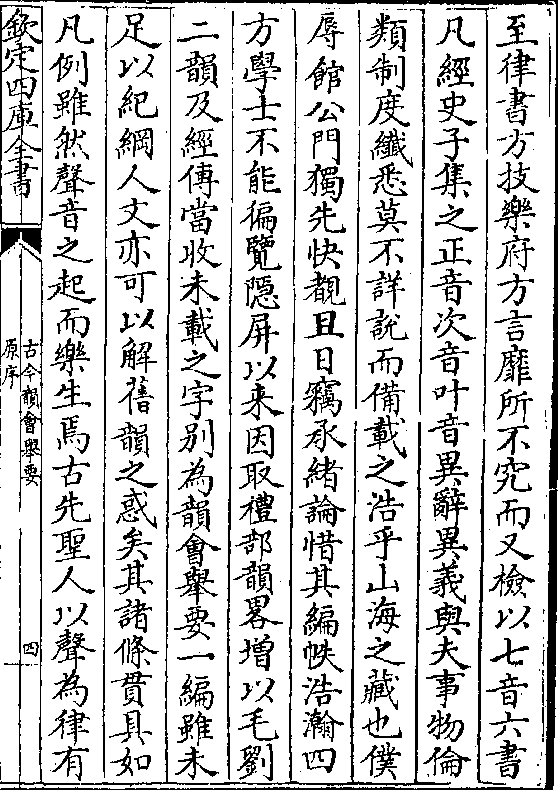 至律書方技樂府方言靡所不究而又檢以七音六書
凡經史子集之正音次音叶音異辭異義與夫事物倫
類制度纎悉莫不詳說而備載之浩乎山海之藏也僕
辱館公門獨先快覩且日竊承緒論惜其編帙浩瀚四
方學士不能徧覽隠屏以來因取禮部韻畧増以毛劉
二韻及經傳當收未載之字别為韻會舉要一編雖未
足以紀綱人文亦可以解舊韻之惑矣其諸條貫具如
凡例雖然聲音之起而樂生焉古先聖人以聲為律有
欽定四庫全書
古今韻會舉要
原序
四